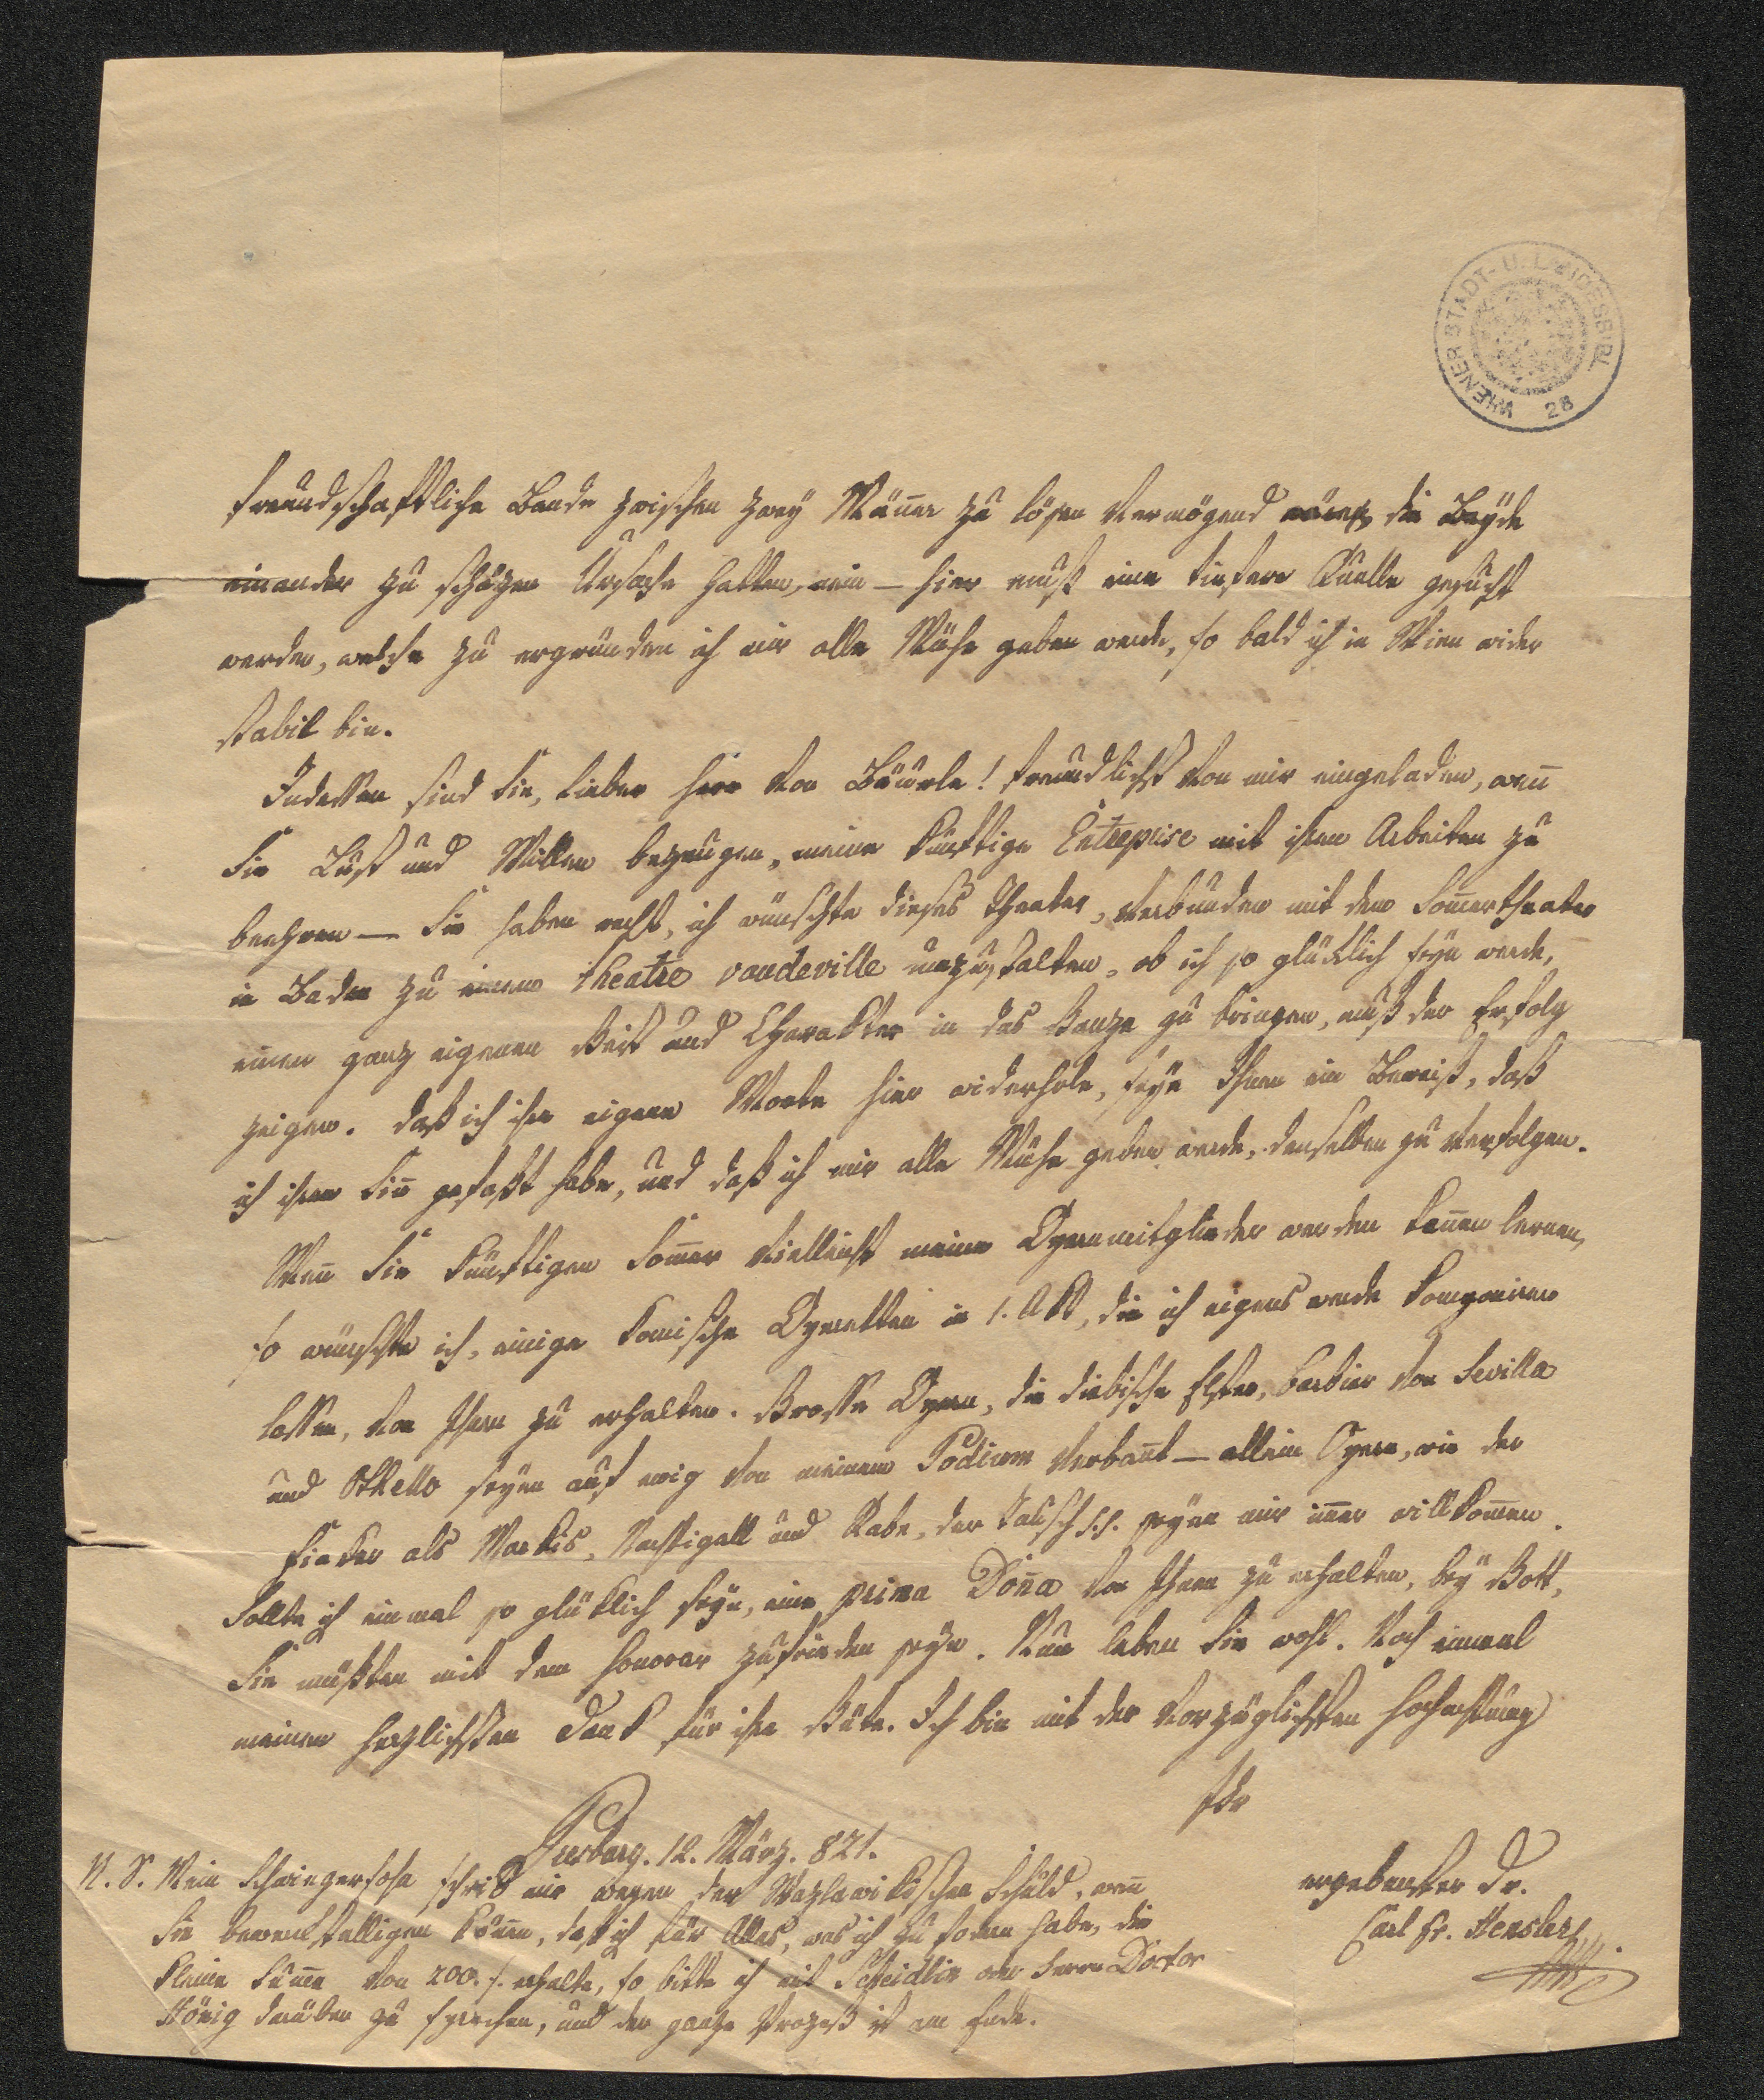 WIENER STADT- U. LANDESBIBL.
28
freundschaftliche Bande zwischen zwey Männer zu lösen vermögend wären, die Beyde
einander zu schäzen Ursache hatten, nein – hier muß eine tiefere Quelle gesucht
werden, welche zu ergründen ich mir alle Mühe geben werde, so bald ich in Wien wider
stabil bin.
Indessen sind Sie, lieber Herr von Bäuerle! freundlichst von mir eingeladen, wenn
Sie Lust und Willen bezeugen, meine künftige Entreprise mit ihren Arbeiten zu
beehren – Sie haben recht, ich wünschte dieses Theater, verbunden mit dem Sommertheater
in Baden zu einem theatre vaudeville umzustalten, ob ich so glüklich seyn werde,
einen ganz eigenen Geist und Charakter in das Ganze zu bringen, muß der Erfolg
zeigen. Daß ich ihre eigene Worte hier widerhole, seye Ihnen ein Beweiß, daß
ich ihren Sinn gefaßt habe, und daß ich mir alle Mühe geben werde, denselben zu verfolgen.
Wenn Sie künftigen Sommer vielleicht meine Opernmitglieder werden kennen lernen,
so wünschte ich, einige komische Operetten in 1. Akt, die ich eigens werde komponiren
lassen, von Ihnen zu erhalten. Grosse Opern, die diebische Elster, Barbier von Sevilla
und Othello seyen auf ewig von meinem Podium verbannt – allein Opern, wie der
Fiaker als Markis, Nachtigall und Rabe, der Lalisch seyen mir immer willkommen.
Sollte ich einmal so glüklich seyn, eine prima Donna von Ihnen zu erhalten, bey Gott,
Sie müßten mit dem Honorar zufrieden seyn. Nun leben Sie wohl. Noch einmal
meinen herzlichsten Dank für ihre Güte. Ich bin mit der vorzüglichsten Hochachtung
Ihr
Presburg. 12. März. 821.
ergebenster Dr.
Carl Fr. Hensler
N. S. Mein Schwiegersohn schrieb mir wegen der Schuld, wenn
Sie bewerkstelligen können, daß ich für Alles, was ich zu fodern habe, die
kleine Summe von 200. f. erhalte, so bitte ich mit Scheidlin oder Herrn Doctor
König darüber zu sprechen, und der ganze Prozeß ist am Ende.